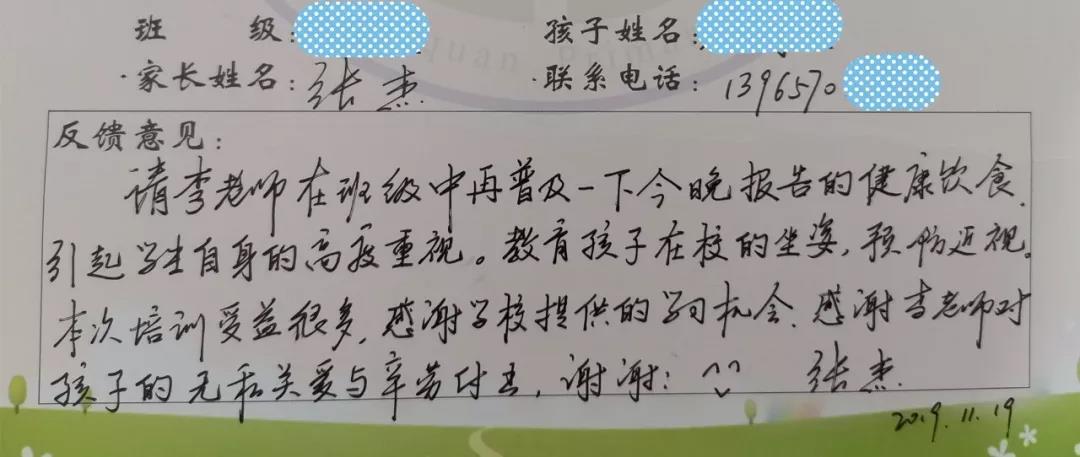 班 级:
孩子姓名:
家长姓名: 张杰
联系电话: 1396570
反馈意见:
请李老师在班级中再普及一下今晚报告的健康饮食.
引起学生自身的高度重视。教育孩子在校的坐姿,预防近视。
本次培训受益很多,感谢学校提供的学习机会.感谢李老师对
孩子的无私关爱与辛劳付出,谢谢! ^^ 张杰.
2019.11.19